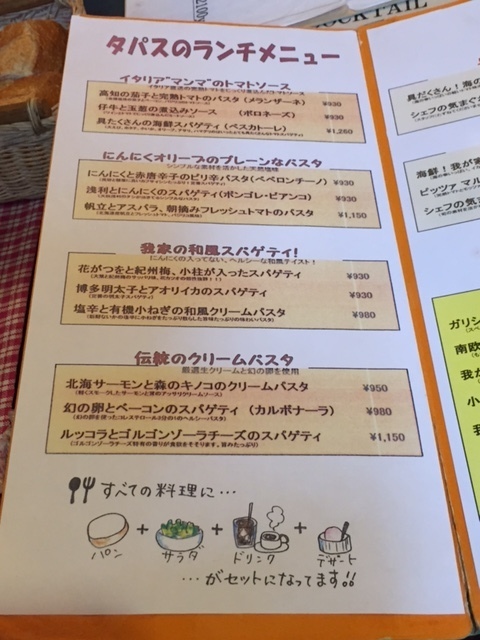 COCKTAIL
タパスのランチメニュー
イタリア"マンマ"のトマトソース
高知の茄子と完熟トマトのパスタ (メランザーネ) ¥930
仔牛と玉葱の煮込みソース (ボロネーズ) ¥930
具たくさんの海鮮スパゲティ (ペスカトーレ) ¥1,260
にんにくオリーブのプレーンなパスタ
シンプルな素材を活かした天然塩味
にんにくと赤唐辛子のピリ辛パスタ(ペペロンチーノ) ¥930
浅利とにんにくのスパゲティ(ボンゴレ・ビアンコ) ¥930
帆立とアスパラ、朝摘みフレッシュトマトのパスタ ¥1,150
我家の和風スパゲティ!
にんにくの入ってない、ヘルシーな和風テイスト!
花がつをと紀州梅、小柱が入ったスパゲティ ¥930
博多明太子とアオリイカのスパゲティ ¥930
塩辛と有機小ねぎの和風クリームパスタ ¥980
伝統のクリームパスタ
厳選生クリームと幻の卵を使用
北海サーモンと森のキノコのクリームパスタ ¥950
(軽くスモークしたサーモンと茸のアッサリクリームソース)
幻の卵とベーコンのスパゲティ (カルボナーラ) ¥980
ルッコラとゴルゴンゾーラチーズのスパゲティ ¥1,150
(ゴルゴンゾーラチーズ特有の香りが食欲をそそります。旨みたっぷり)
すべての料理に…
パン + サラダ + ドリンク + デザート
…がセットになってます!!
具だくさん!海の
シェフの気まぐ
海鮮!我が家
ピッツァ マル
シェフの気ま
ガリシ
南欧
我か
小
我